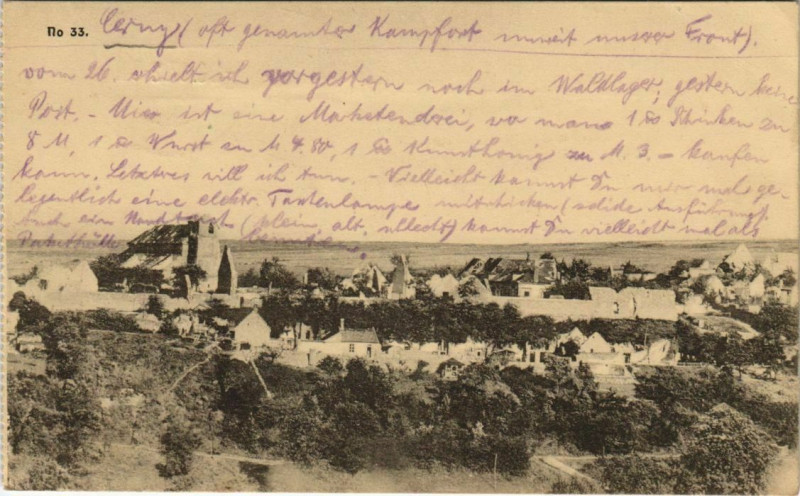 No 33. Cerny (oft genannter Kampfort unweit unserer Front).
vom 26. erhielt ich vorgestern noch im Waldlager, gestern keine
Post. - Hier ist eine Marketenderei, wo man 1 Schinken zu
8 M, 1 Wurst zu M 4.80, 1 Kunsthonig zu M. 3. - kaufen
kann. Letztres will ich tun. - Vielleicht kannst Du mir mal ge-
legentlich eine elektr. Taschenlampe mitschicken (solide Ausführung).
Auch ein Handtuch (klein, alt, schlecht) kannst Du vielleicht mal als
Pakethülle